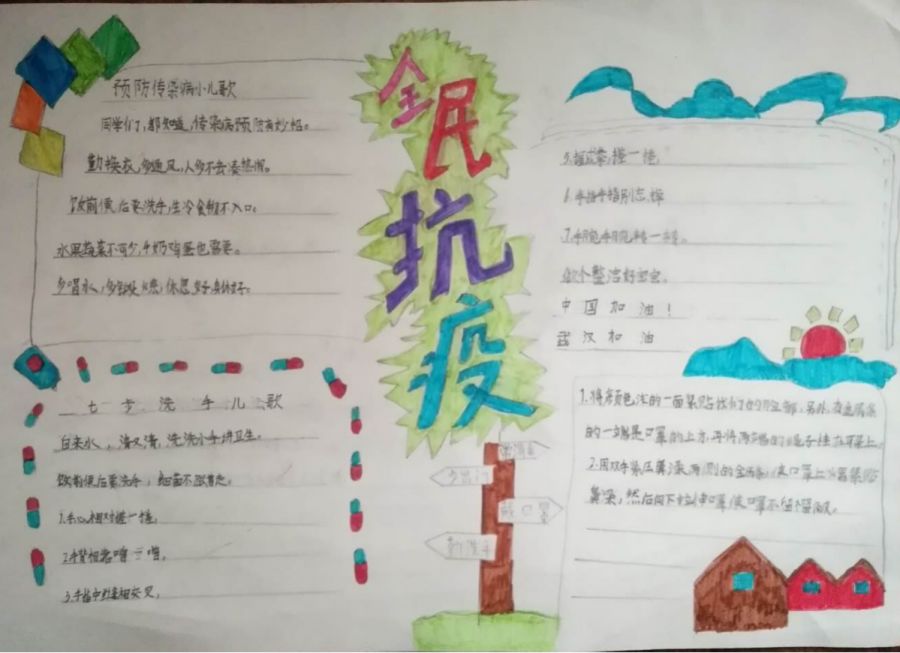 全民抗疫
预防传染病小儿歌
同学们,都知道,传染病预防有妙招。
勤换衣,多通风,人多不去凑热闹。
饭前便后要洗手,生冷食物不入口。
水果蔬菜不可少,牛奶鸡蛋也需要。
多喝水,多锻炼,休息好身体好。
七步洗手儿歌
自来水,清又清,洗洗小手讲卫生。
饭前便后要洗手,细菌不跟着走。
1.手心相对搓一搓,
2.手背相靠蹭一蹭,
3.手指中缝相交叉,
多出门
戴口罩
勤洗手
5.握成拳,搓一搓,
6.手指手指别忘掉
7.手腕手腕转一转。
做个整洁好宝宝。
中国加油!
武汉加油
1.将颜色浅的一面紧贴我们的脸部,另外,有金属条
的一端是口罩的上方,再将两端的绳子挂在耳朵上。
2.用双手紧压鼻梁两侧的金属条,使口罩上端紧贴
鼻梁,然后向下拉伸口罩,使口罩不留